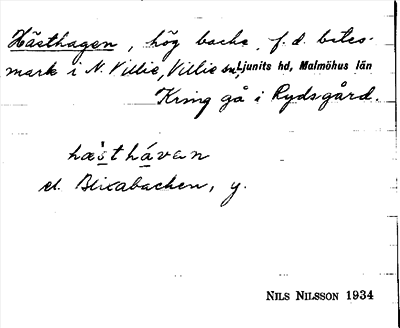 Hästhagen, hög backe, f.d. betes-
mark i N. Villie, Villie sn Ljunits hd, Malmöhus län
Kring gå i Rydsgård.
hæ̀sthávan
el. Blixabacken, y.
NILS NILSSON 1934